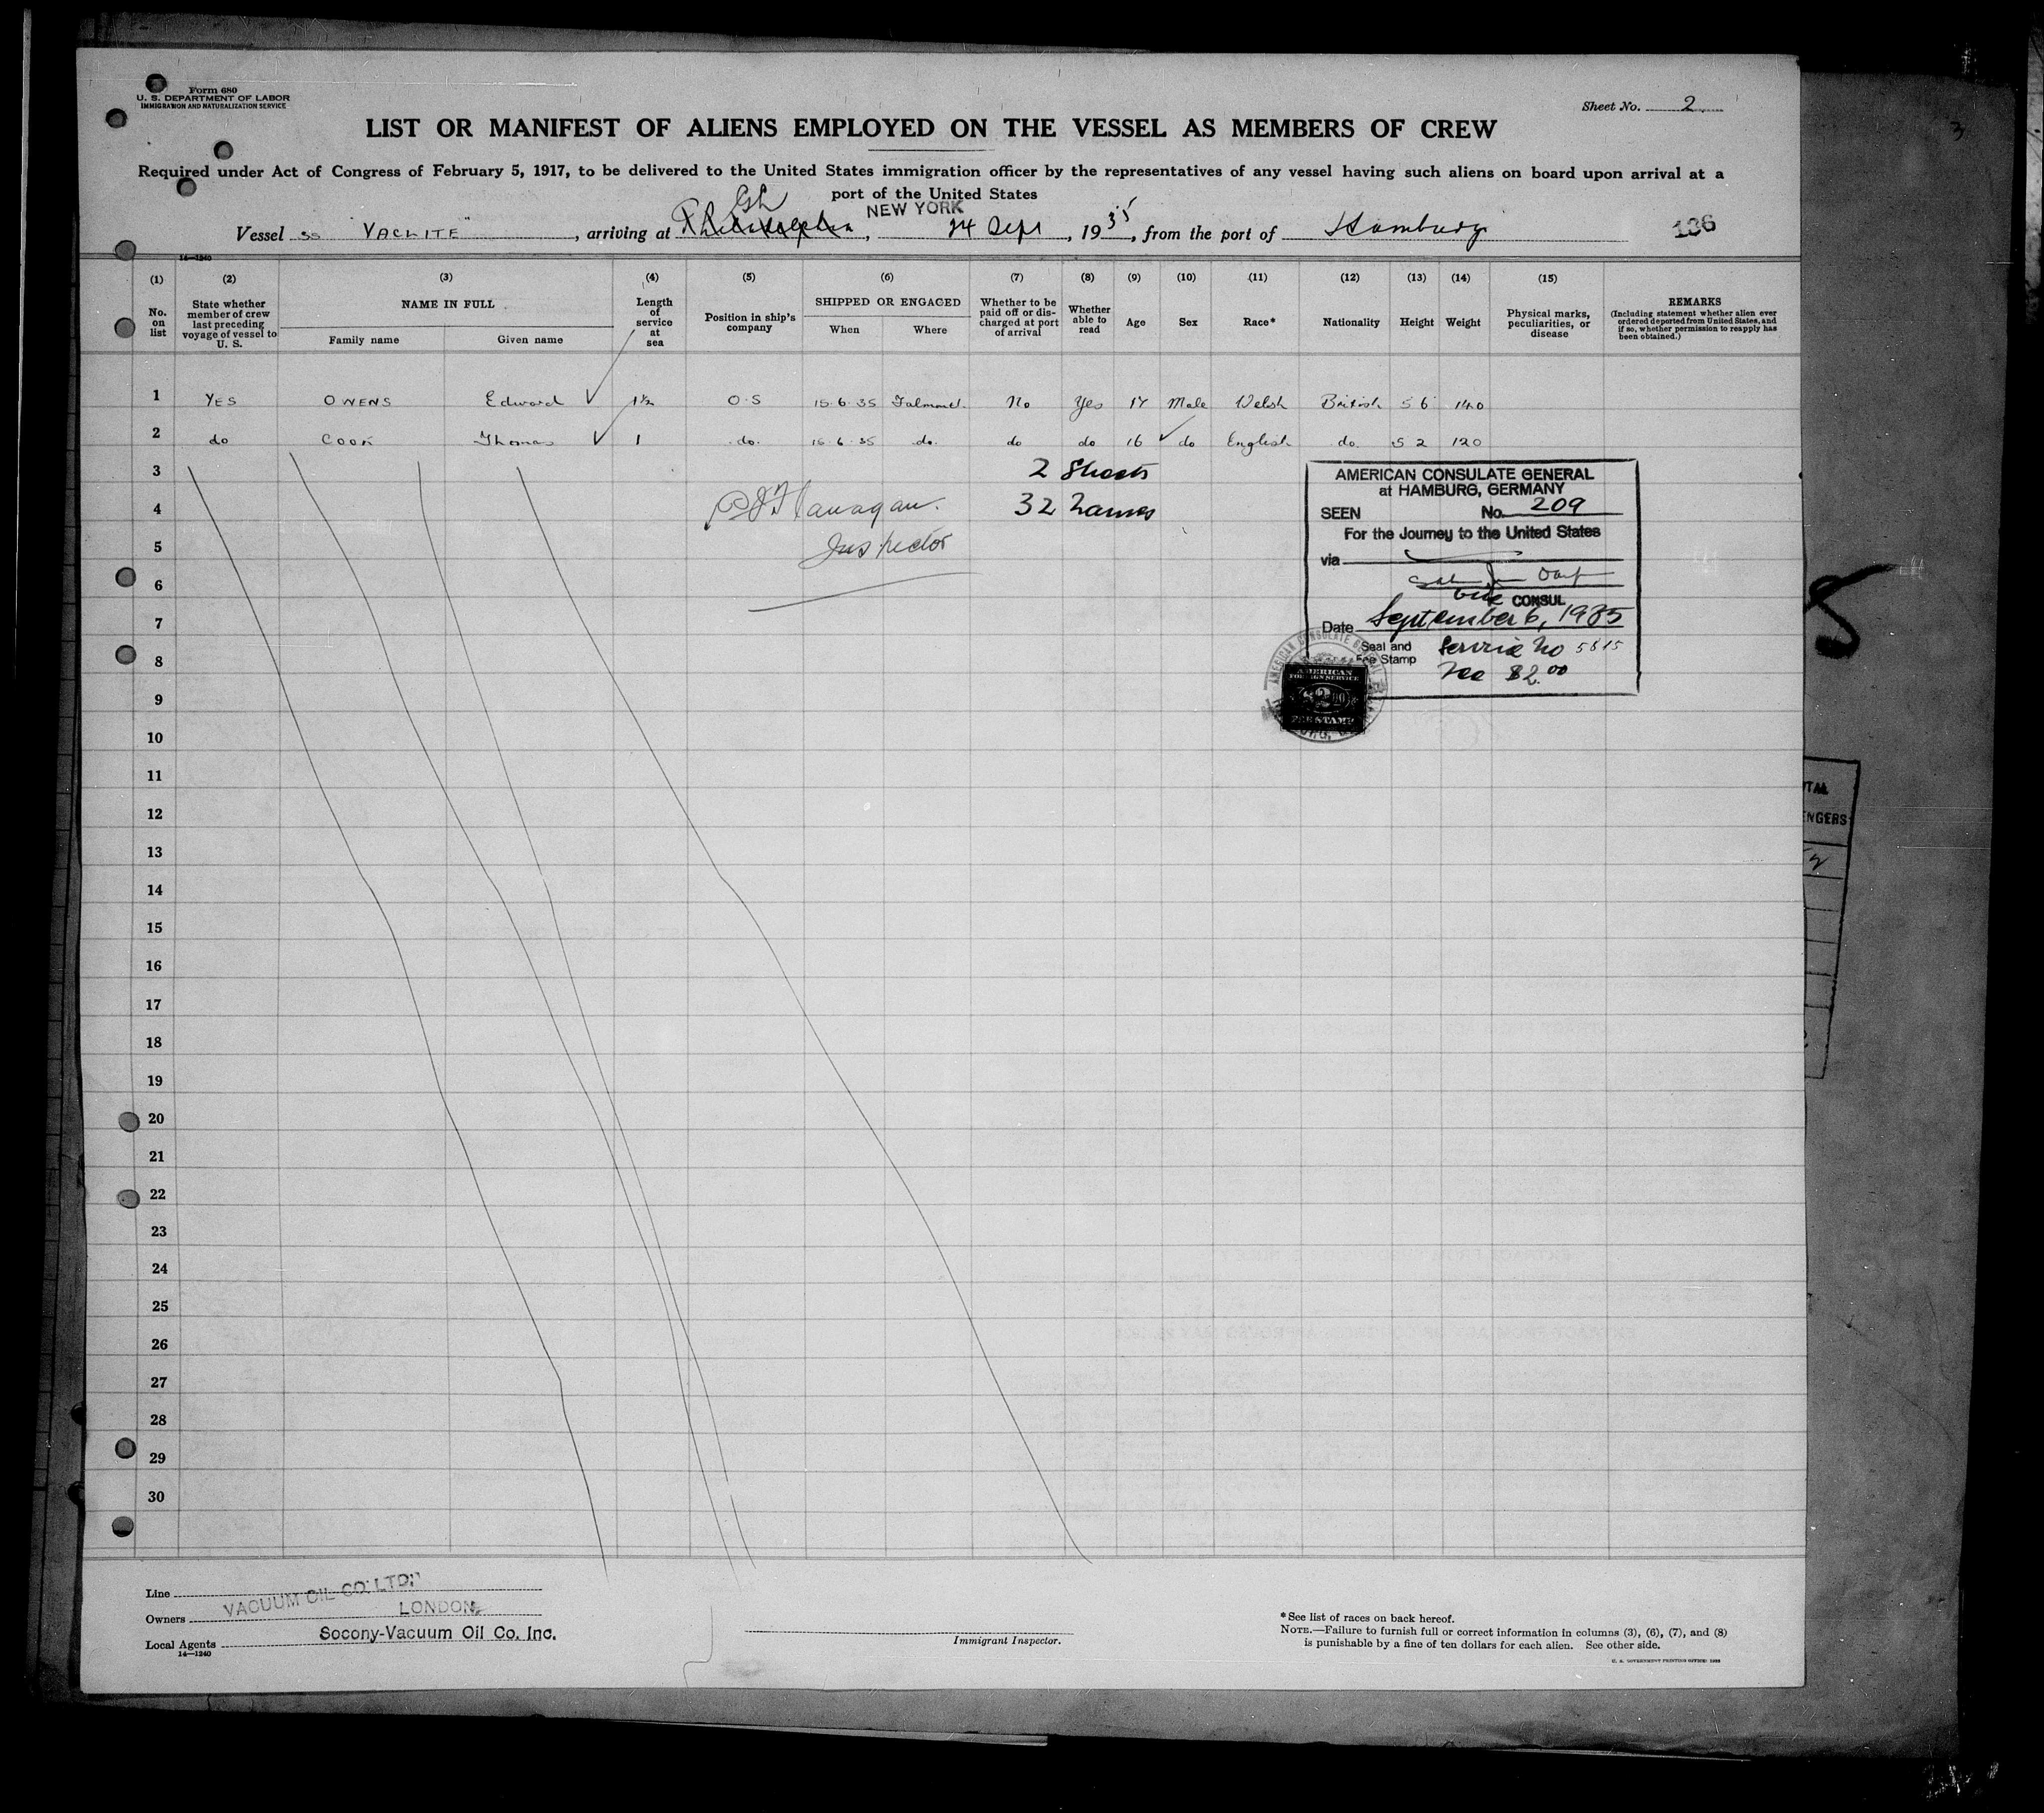 Form 680
U. S. DEPARTMENT OF LABOR
IMMIGRATION AND NATURALIZATION SERVICE
Sheet No. 2
LIST OR MANIFEST OF ALIENS EMPLOYED ON THE VESSEL AS MEMBERS OF CREW
Required under Act of Congress of February 5, 1917, to be delivered to the United States immigration officer by the representatives of any vessel having such aliens on board upon arrival at a
port of the United States
NEW YORK
Vessel SS "VACLITE", arriving at Philadelphia, 24 Sept, 1935, from the port of Hamburg
136
14-1240
(1) (2) (3) (4) (5) (6) (7) (8) (9) (10) (11) (12) (13) (14) (15)
No. on list
State whether member of crew last preceding voyage of vessel to U. S.
NAME IN FULL
Family name
Given name
Length of service at sea
Position in ship's company
SHIPPED OR ENGAGED
When
Where
Whether to be paid off or discharged at port of arrival
Whether able to read
Age
Sex
Race*
Nationality
Height
Weight
Physical marks, peculiarities, or disease
REMARKS
(Including statement whether alien ever ordered deported from United States, and if so, whether permission to reapply has been obtained.)
1 YES OWENS Edward 1½ O.S 15.6.35 Falmouth No Yes 17 Male Welsh British 5 6 140
2 do COOK Thomas 1 do. 15.6.35 do. do do 16 do English do. 5 2 120
3 2 Sheets
4 Flanagan. 32 Names
5 Inspector
6
7
8
9
10
11
12
13
14
15
16
17
18
19
20
21
22
23
24
25
26
27
28
29
30
AMERICAN CONSULATE GENERAL
at HAMBURG, GERMANY
SEEN No. 209
For the Journey to the United States
via
Vice CONSUL
Date September 6, 1935
Seal and Fee Stamp
Service No 5815
Fee $2.00
AMERICAN
FOREIGN SERVICE
FEE STAMP
Line
VACUUM OIL CO. LTD.
Owners
LONDON
Local Agents Socony-Vacuum Oil Co. Inc.
14-1240
Immigrant Inspector.
*See list of races on back hereof.
NOTE.—Failure to furnish full or correct information in columns (3), (6), (7), and (8)
is punishable by a fine of ten dollars for each alien. See other side.